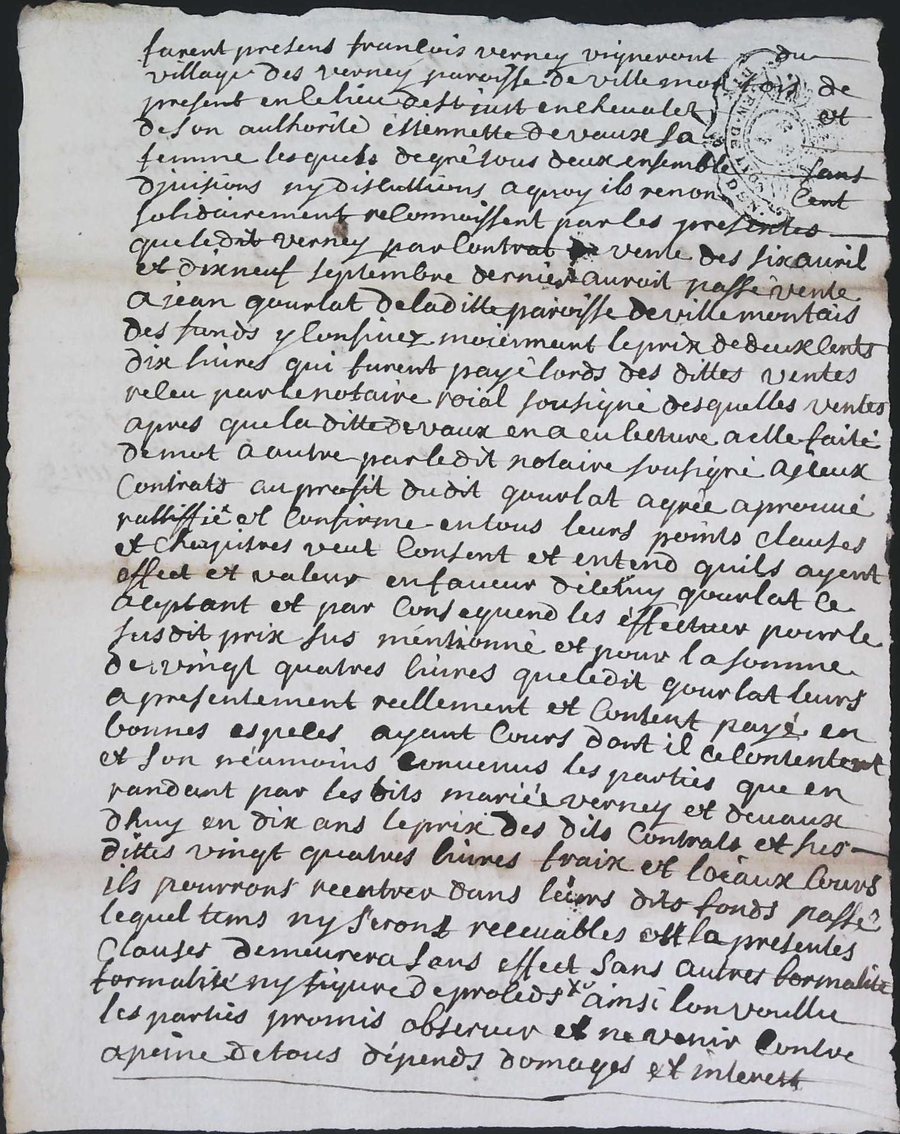 furent presens francois verney vigneront du
village des verney paroisse de villemon de
present en le lieu de st just en chevalet et
de son authorité éttiennette devaux sa
femme lesquels de gré tous deux ensemble sans
divisions ny discuttions a quoy ils renon cent
solidairement reconnoissent par les presentes
que ledit verney par Contrat de vente des six avril
et dix neuf septembre dernier auroit passé vente
a jean gourlat de laditte paroisse de villemontais
des funds y Confinez moiennant le prix de deux Cents
dix livres qui furent payé lords des dittes ventes
receu par le notaire roial sousigné desquelles ventes
apres que la ditte devaux en a eu lecture a elle faité
de mot a autre par ledit notaire sousigné a iceux
Contrats au profit dudit gourlat agrée aprouué
rattiffié et Confirme en tous leurs points Clauses
et Chapitres veut Consent et entend quils ayent
effect et valeur en faveur diceluy gourlat Ce
aceptant et par Consequend les éffectuer pour le
susdit prix sus méntionné et pour la somme
de vingt quatres livres que ledit gourlat leurs
a presentement réellement et Content payé en
bonnes especes ayant Cours dont il ce Contentent
et son néaumoins Convenus les parties que en
randant par les dits mariée verney et devaux
dhuy en dix ans le prix des dits Contrats et sus
dittes vingt quatres livres fraix et loiaux Cours
ils pourront reentrer dans leurs dits fonds passé
lequel tems ny seront recevables et la presentes
Clauses demeurera sans effect sans autres formalite
formalité ny figure de proceds ainsi lon voullu
les parties promis observer et ne venir Contre
a peine de tous dépends domages et interest